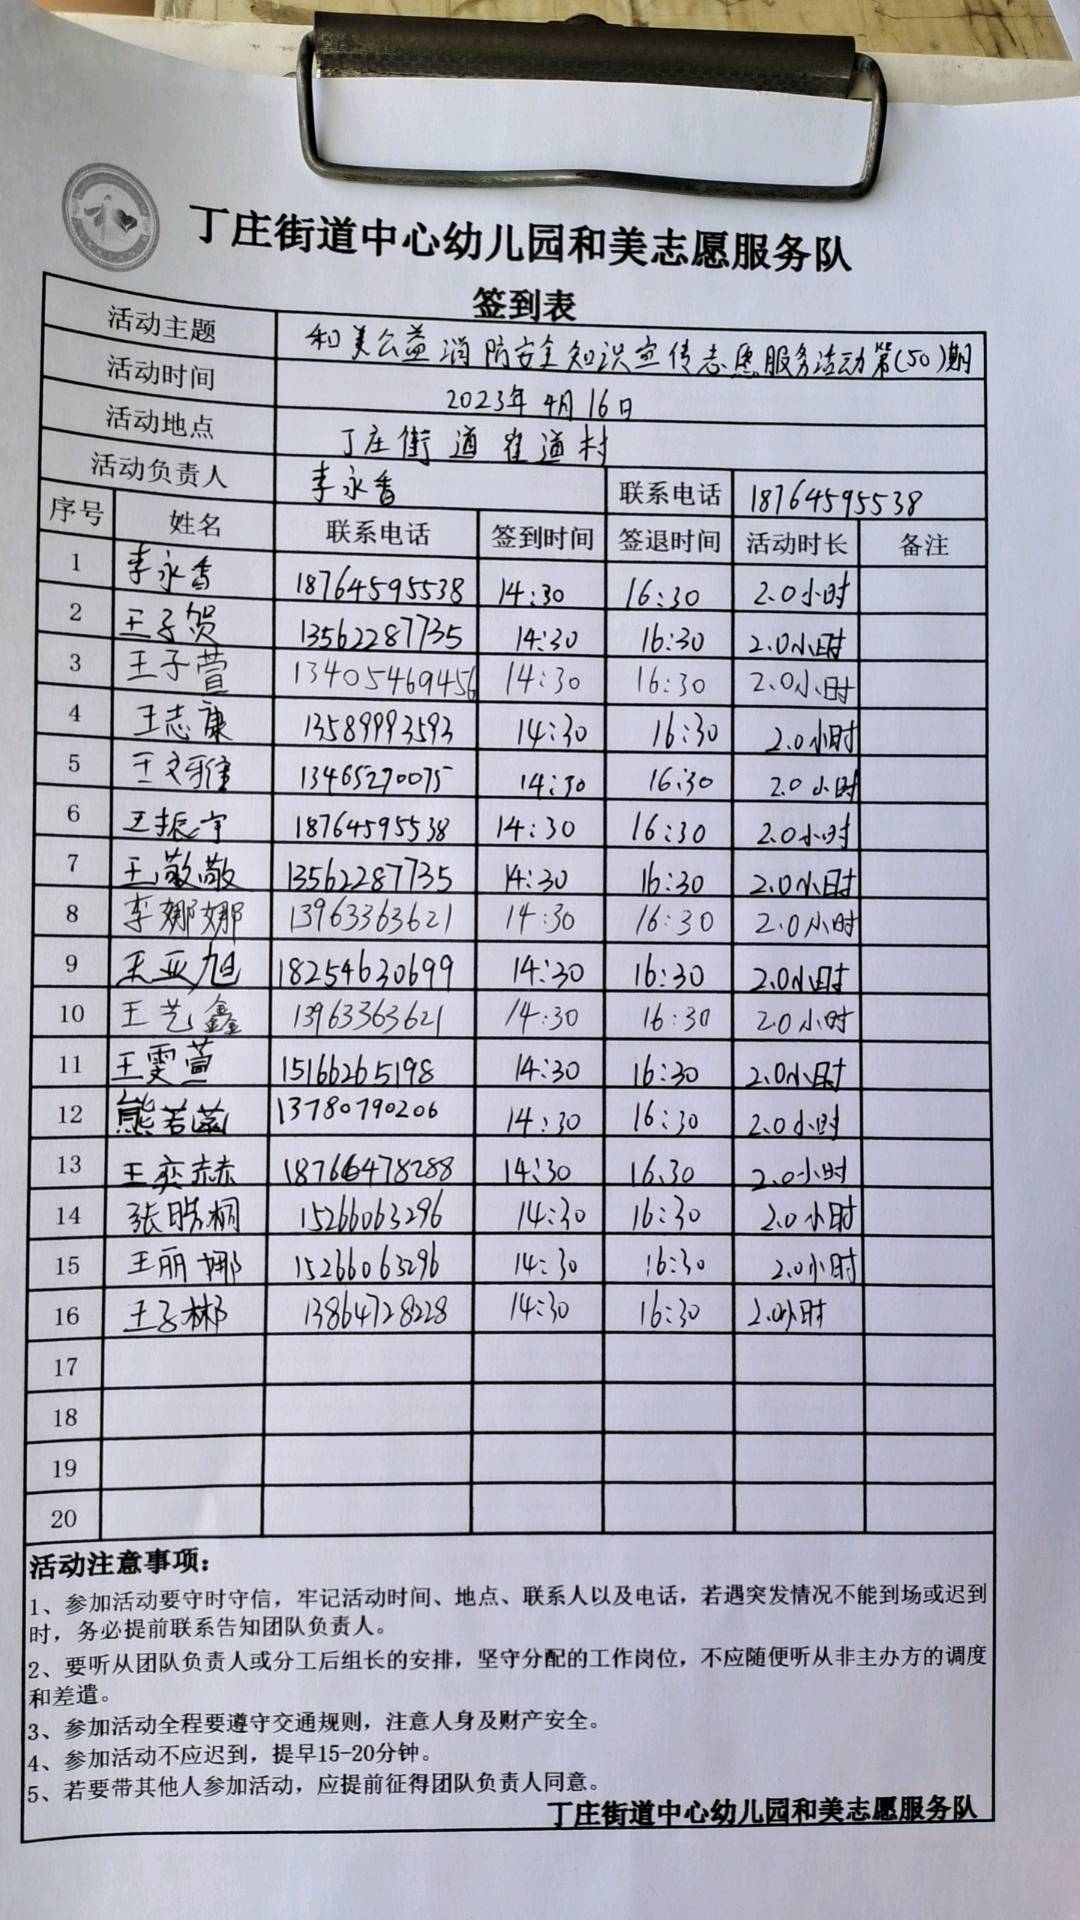 丁庄街道中心幼儿园和美志愿服务队
签到表
活动主题 和美公益消防安全知识宣传志愿服务活动第(50)期
活动时间 2023年4月16日
活动地点 丁庄街道崔道村
活动负责人 李永香 联系电话 18764595538
序号 姓名 联系电话 签到时间 签退时间 活动时长 备注
1 李永香 18764595538 14:30 16:30 2.0小时
2 王子贺 13562287735 14:30 16:30 2.0小时
3 王子萱 13405469456 14:30 16:30 2.0小时
4 王志康 13589993593 14:30 16:30 2.0小时
5 王文雅 13465270075 14:30 16:30 2.0小时
6 王振宇 18764595538 14:30 16:30 2.0小时
7 王敬敬 13562287735 14:30 16:30 2.0小时
8 李娜娜 13963363621 14:30 16:30 2.0小时
9 王亚旭 18254630699 14:30 16:30 2.0小时
10 王艺鑫 13963363621 14:30 16:30 2.0小时
11 王雯萱 15166265198 14:30 16:30 2.0小时
12 熊若涵 13780790206 14:30 16:30 2.0小时
13 王奕赫 18766478288 14:30 16.30 2.0小时
14 张皓桐 15266063296 14:30 16:30 2.0小时
15 王丽娜 15266063296 14:30 16:30 2.0小时
16 王子彬 13864728228 14:30 16:30 2.0小时
17
18
19
20
活动注意事项：
1、参加活动要守时守信，牢记活动时间、地点、联系人以及电话，若遇突发情况不能到场或迟到
时，务必提前联系告知团队负责人。
2、要听从团队负责人或分工后组长的安排，坚守分配的工作岗位，不应随便听从非主办方的调度
和差遣。
3、参加活动全程要遵守交通规则，注意人身及财产安全。
4、参加活动不应迟到，提早15-20分钟。
5、若要带其他人参加活动，应提前征得团队负责人同意。
丁庄街道中心幼儿园和美志愿服务队